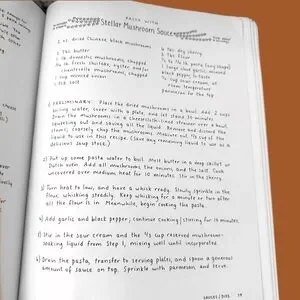 PASTA WITH
Stellar Mushroom Sauce
oz. dried Chinese black mushrooms
Tbs. butter
lb. domestic mushrooms, chopped
lb. fresh shiitake, oyster and/or
mushrooms, chopped
1 cup minced onion
1 tsp. salt
Tbs. dry sherry
Tbs. flour
lb. pasta (any shape)
large cloves garlic, minced
black pepper, to taste
cup sour cream, at
room temperature
parmesan for the top
1) PRELIMINARY: Place the dried mushrooms in a bowl. Add 2 cups
boiling water, cover with a plate, and let stand 30 minutes.
Drain the mushrooms in a strainer over a bowl,
squeezing out and saving all the liquid. Remove and discard the
stems; coarsely chop the mushrooms.
liquid to use in this recipe. (Save any remaining liquid to use as a
delicious soup stock.)
2) Put up some pasta water to boil. Melt butter in a deep skillet or
Dutch oven. Add all the mushrooms, the onion, and the salt. Cook
uncovered over medium heat for 10 minutes. Stir in the sherry.
3) Turn heat to low, and have a whisk ready. Slowly sprinkle in the
flour, whisking steadily. Keep whisking for a minute or two after
all the flour is in. Meanwhile, begin cooking the pasta.
4) Add garlic and black pepper; continue cooking/stirring for 10 minutes.
5) Stir in the sour cream and the ⅔ cup reserved mushroom-
soaking liquid from Step 1, mixing well until incorporated.
6) Drain the pasta, transfer to serving plates, and spoon a generous
amount of sauce on top. Sprinkle with parmesan, and serve.
SAUCES / DIPS